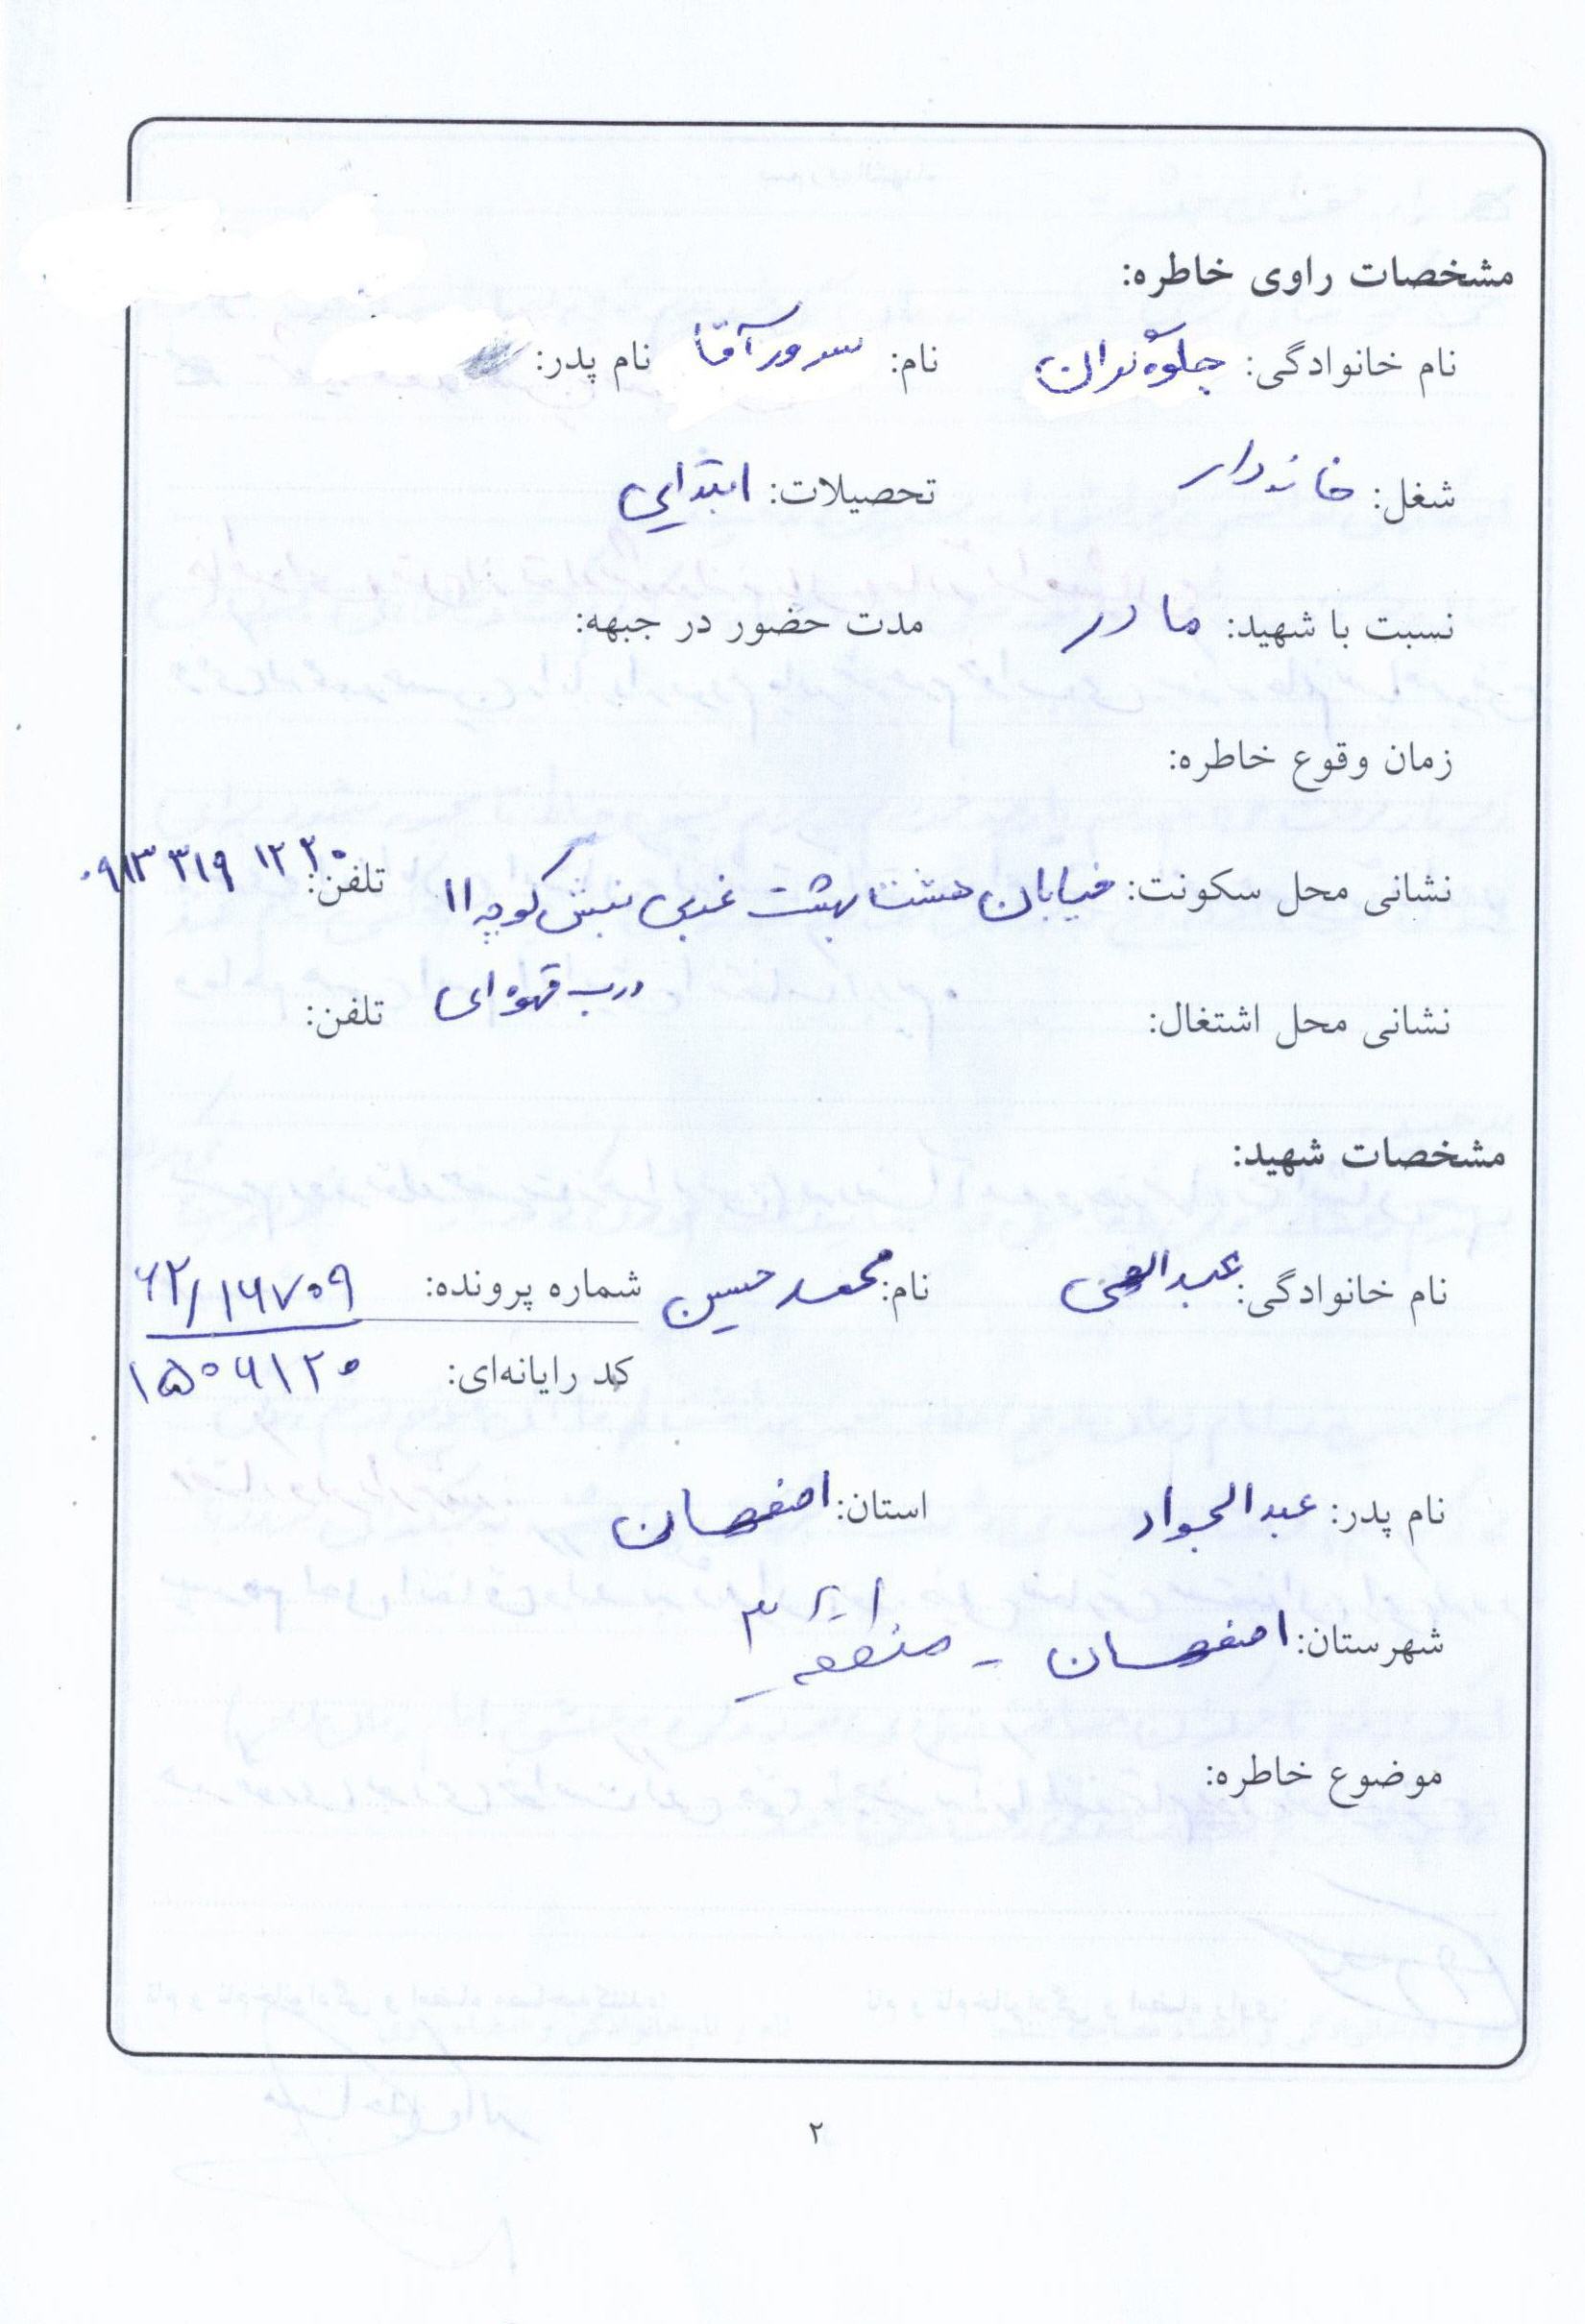 مشخصات راوی خاطره:
نام خانوادگی: جلوه نران نام: سرور آقا نام پدر:
شغل: خانه دار تحصیلات: ابتدایی
نسبت با شهید: مادر مدت حضور در جبهه:
زمان وقوع خاطره:
نشانی محل سکونت: خیابان هشت بهشت غربی نبش کوچه ۱۱ تلفن: ۰۹۱۳ ۳۱۹ ۱۲۲۰
درب قهوه ای
نشانی محل اشتغال: تلفن:
مشخصات شهید:
نام خانوادگی: نام: محمد حسین شماره پرونده: ۶۲/۱۶۷۰۹
کد رایانه‌ای: ۱۵۰۶۱۲۰
نام پدر: عبدالجواد استان: اصفهان
شهرستان: اصفهان - منطقه ۳
موضوع خاطره:
۲